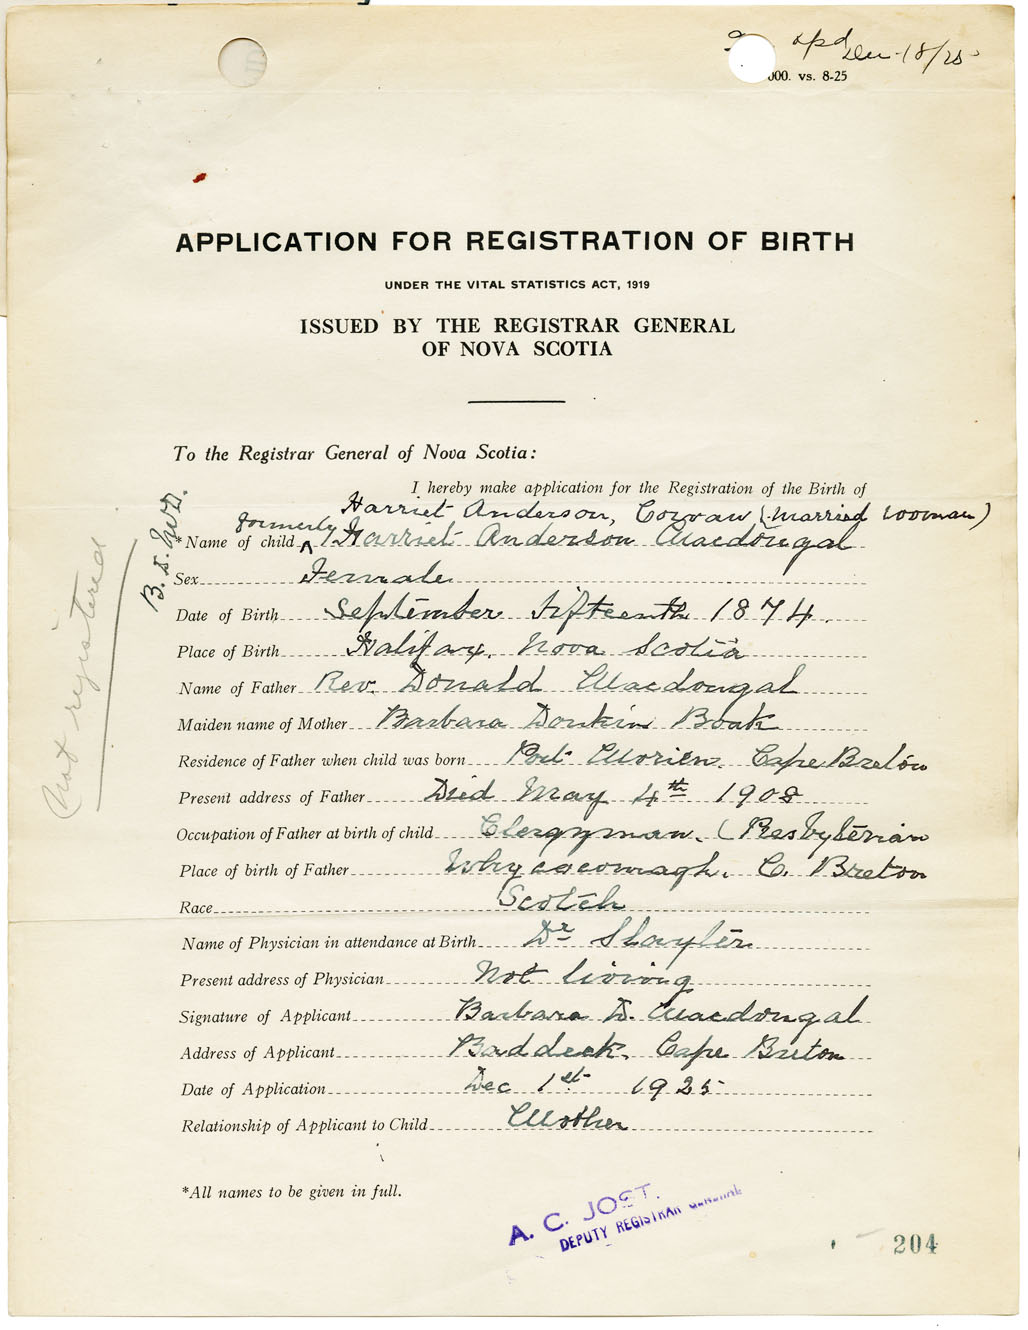 apd Dec 18/25
000. vs. 8-25
APPLICATION FOR REGISTRATION OF BIRTH
UNDER THE VITAL STATISTICS ACT, 1919
ISSUED BY THE REGISTRAR GENERAL
OF NOVA SCOTIA
To the Registrar General of Nova Scotia:
I hereby make application for the Registration of the Birth of
Harriet Anderson, Cowan (Married Woman)
*Name of child formerly Harriet Anderson Macdougal
Sex Female
Date of Birth September Fifteenth 1874.
Place of Birth Halifax. Nova Scotia
Name of Father Rev. Donald Macdougal
Maiden name of Mother Barbara Donkin Boak
Residence of Father when child was born Port Morien. Cape Breton
Present address of Father Died May 4th 1908
Occupation of Father at birth of child Clergyman. (Presbyterian
Place of birth of Father Whycocomagh. C. Breton
Race Scotch
Name of Physician in attendance at Birth Dr Slayter
Present address of Physician Not living
Signature of Applicant Barbara D. Macdougal
Address of Applicant Baddeck. Cape Breton
Date of Application Dec 1st 1925
Relationship of Applicant to Child Mother
*All names to be given in full.
A. C. JOST.
DEPUTY REGISTRAR GENERAL
204
Not registered
B.S.